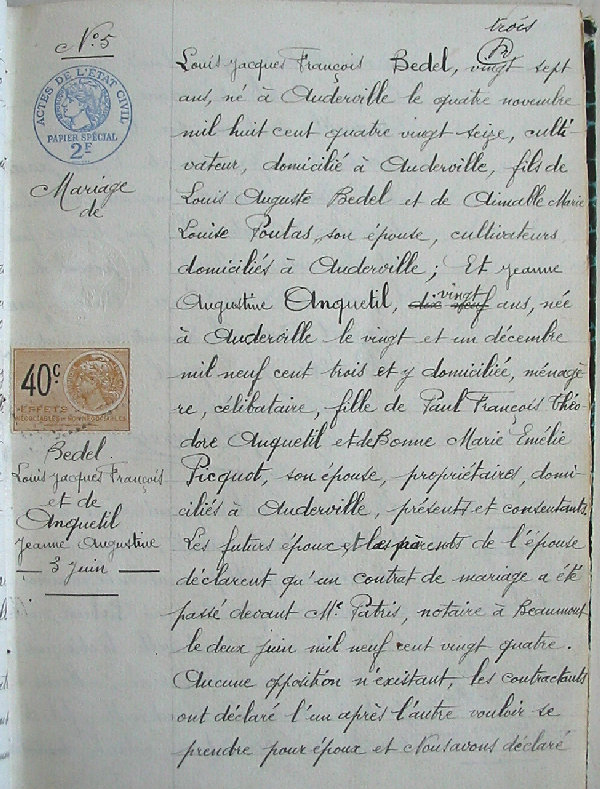 trois
N° 5
ACTES DE L'ÉTAT CIVIL
PAPIER SPÉCIAL
2F
Mariage
de
40c
EFFETS
NÉGOCIABLES OU NON NÉGOCIABLES
Bedel
Louis Jacques François
et de
Anquetil
Jeanne Augustine
3 Juin
Louis Jacques François Bedel, vingt sept
ans, né à Auderville le quatre novembre
mil huit cent quatre vingt seize, culti-
vateur, domicilié à Auderville, fils de
Louis Auguste Bedel et de Aimable Marie
Louise Poutas, son épouse, cultivateurs
domiciliés à Auderville ; Et Jeanne
Augustine Anquetil, dix neuf vingt ans, née
à Auderville le vingt et un décembre
mil neuf cent trois et y domiciliée, ménagè-
re, célibataire, fille de Paul François Théo-
dore Anquetil et de Bonne Marie Emélie
Picquot, son épouse, propriétaires, domi-
ciliés à Auderville, présents et consentants.
Les futurs époux et les parents de l'épouse
déclarent qu'un contrat de mariage a été
passé devant Me Patris, notaire à Beaumont
le deux juin mil neuf cent vingt quatre.
Aucune opposition n'existant, les contractants
ont déclaré l'un après l'autre vouloir se
prendre pour époux et Nous avons déclaré